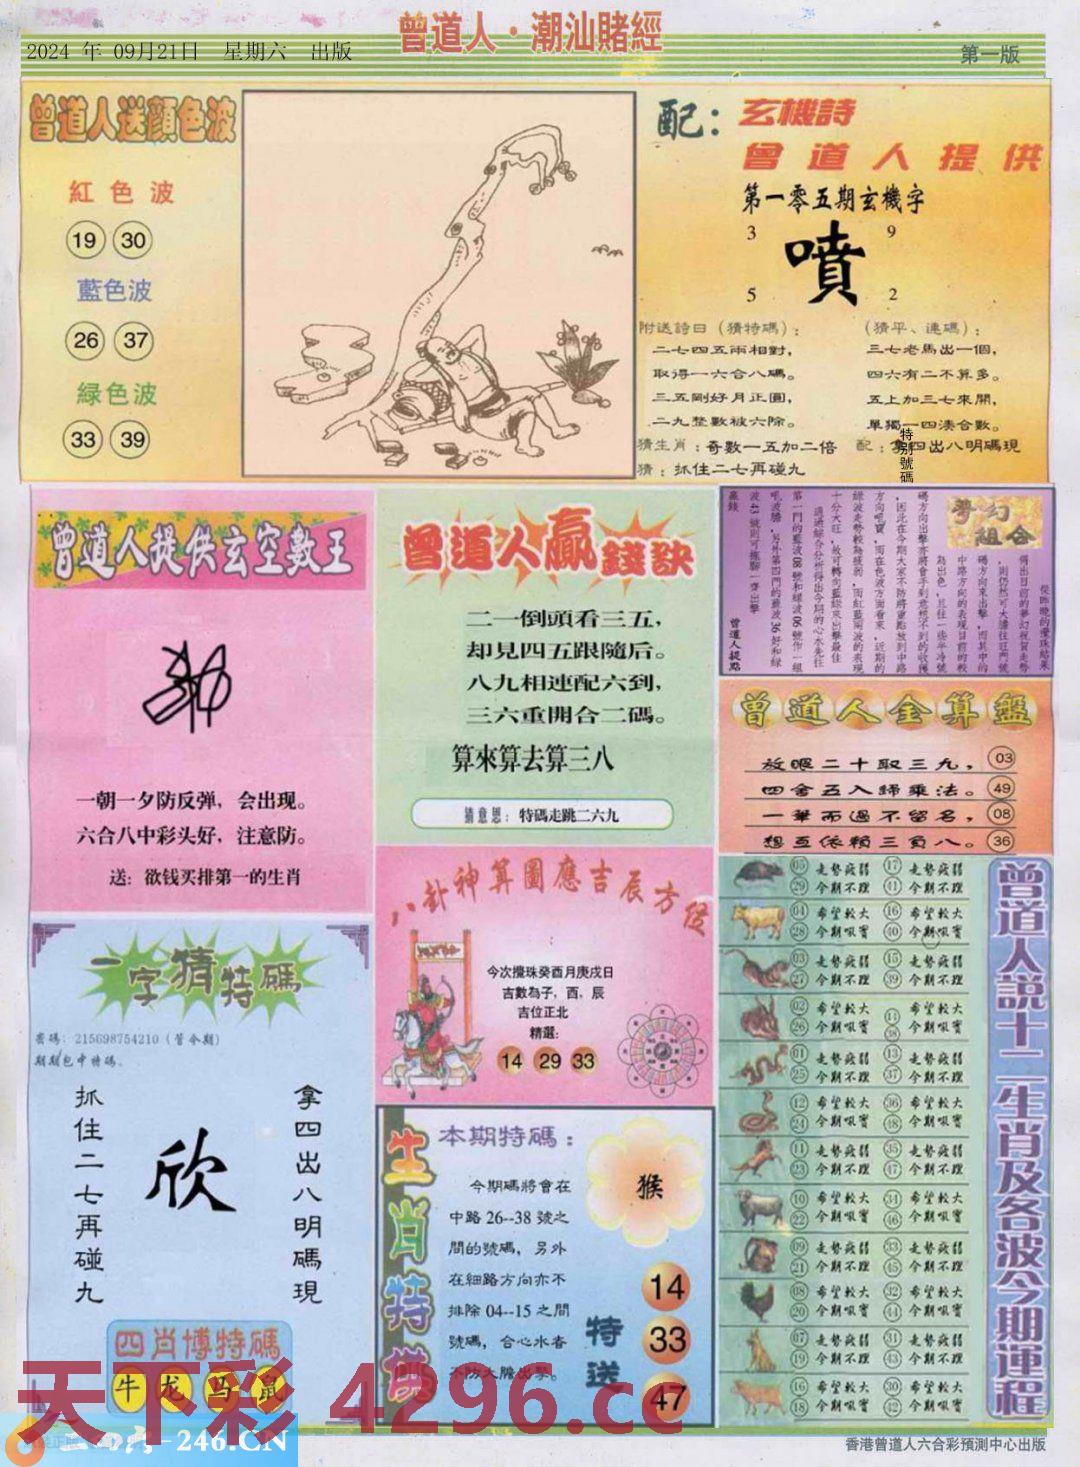 曾道人·潮汕賭經
2024 年 09月21日 星期六 出版
第一版
曾道人送顔色波
紅色波
19 30
藍色波
26 37
緑色波
33 39
配：玄機詩
曾道人提供
第一零五期玄機字
3 9
噴
5 2
附送詩曰（猜特碼）：
二七四五兩相對，
取得一六合八碼。
三五剛好月正圓，
二九整數被六除。
（猜平、連碼）：
三七老馬出一個，
四六有二不算多。
五上加三七來開，
單獨一四湊合數。
猜生肖：奇數一五加二倍
配：拿四出八明碼現
猜：抓住二七再碰九
特别號碼
曾道人提供玄空數王
一朝一夕防反弹，会出现。
六合八中彩头好，注意防。
送：欲钱买排第一的生肖
曾道人贏錢訣
二一倒頭看三五，
却見四五跟隨后。
八九相連配六到，
三六重開合二碼。
算來算去算三八
猜意思：特碼走跳二六九
夢幻組合
曾道人提點
曾道人金算盤
放眼二十取三九， 03
四舍五入歸乘法。 49
一筆而過不留名， 08
想互依賴三負八。 36
一字猜特碼
密碼：215698754210（管今期）
期期包中特碼。
抓住二七再碰九
欣
拿四出八明碼現
四肖博特碼
牛 龙 马 鼠
八卦神算圖應吉辰方位
今次攪珠癸酉月庚戌日
吉數為子，酉，辰
吉位正北
精選：
14 29 33
生肖特供
本期特碼：
今期碼將會在
中路 26--38 號之
間的號碼，另外
在細路方向亦不
排除 04--15 之間
號碼，合心水者
不防大膽出擊。
猴
特送
14
33
47
曾道人説十二生肖及各波今期運程
05 走勢疲弱 17 走勢疲弱
29 今期不理 41 今期不理
04 希望較大 16 希望較大
28 今期呱寶 40 今期呱寶
03 走勢疲弱 15 走勢疲弱
27 今期不理 39 今期不理
02 希望較大 14 希望較大
26 今期呱寶 38 今期呱寶
01 走勢疲弱 13 走勢疲弱
25 今期不理 37 今期不理
12 希望較大 36 希望較大
24 今期呱寶 48 今期呱寶
11 走勢疲弱 35 走勢疲弱
23 今期不理 47 今期不理
10 希望較大 34 希望較大
22 今期呱寶 46 今期呱寶
09 走勢疲弱 33 走勢疲弱
21 今期不理 45 今期不理
08 希望較大 32 希望較大
20 今期呱寶 44 今期呱寶
07 走勢疲弱 31 走勢疲弱
19 今期不理 43 今期不理
16 希望較大 30 希望較大
18 今期呱寶 42 今期呱寶
天下彩 4296.cc
246.CN
香港曾道人六合彩預測中心出版